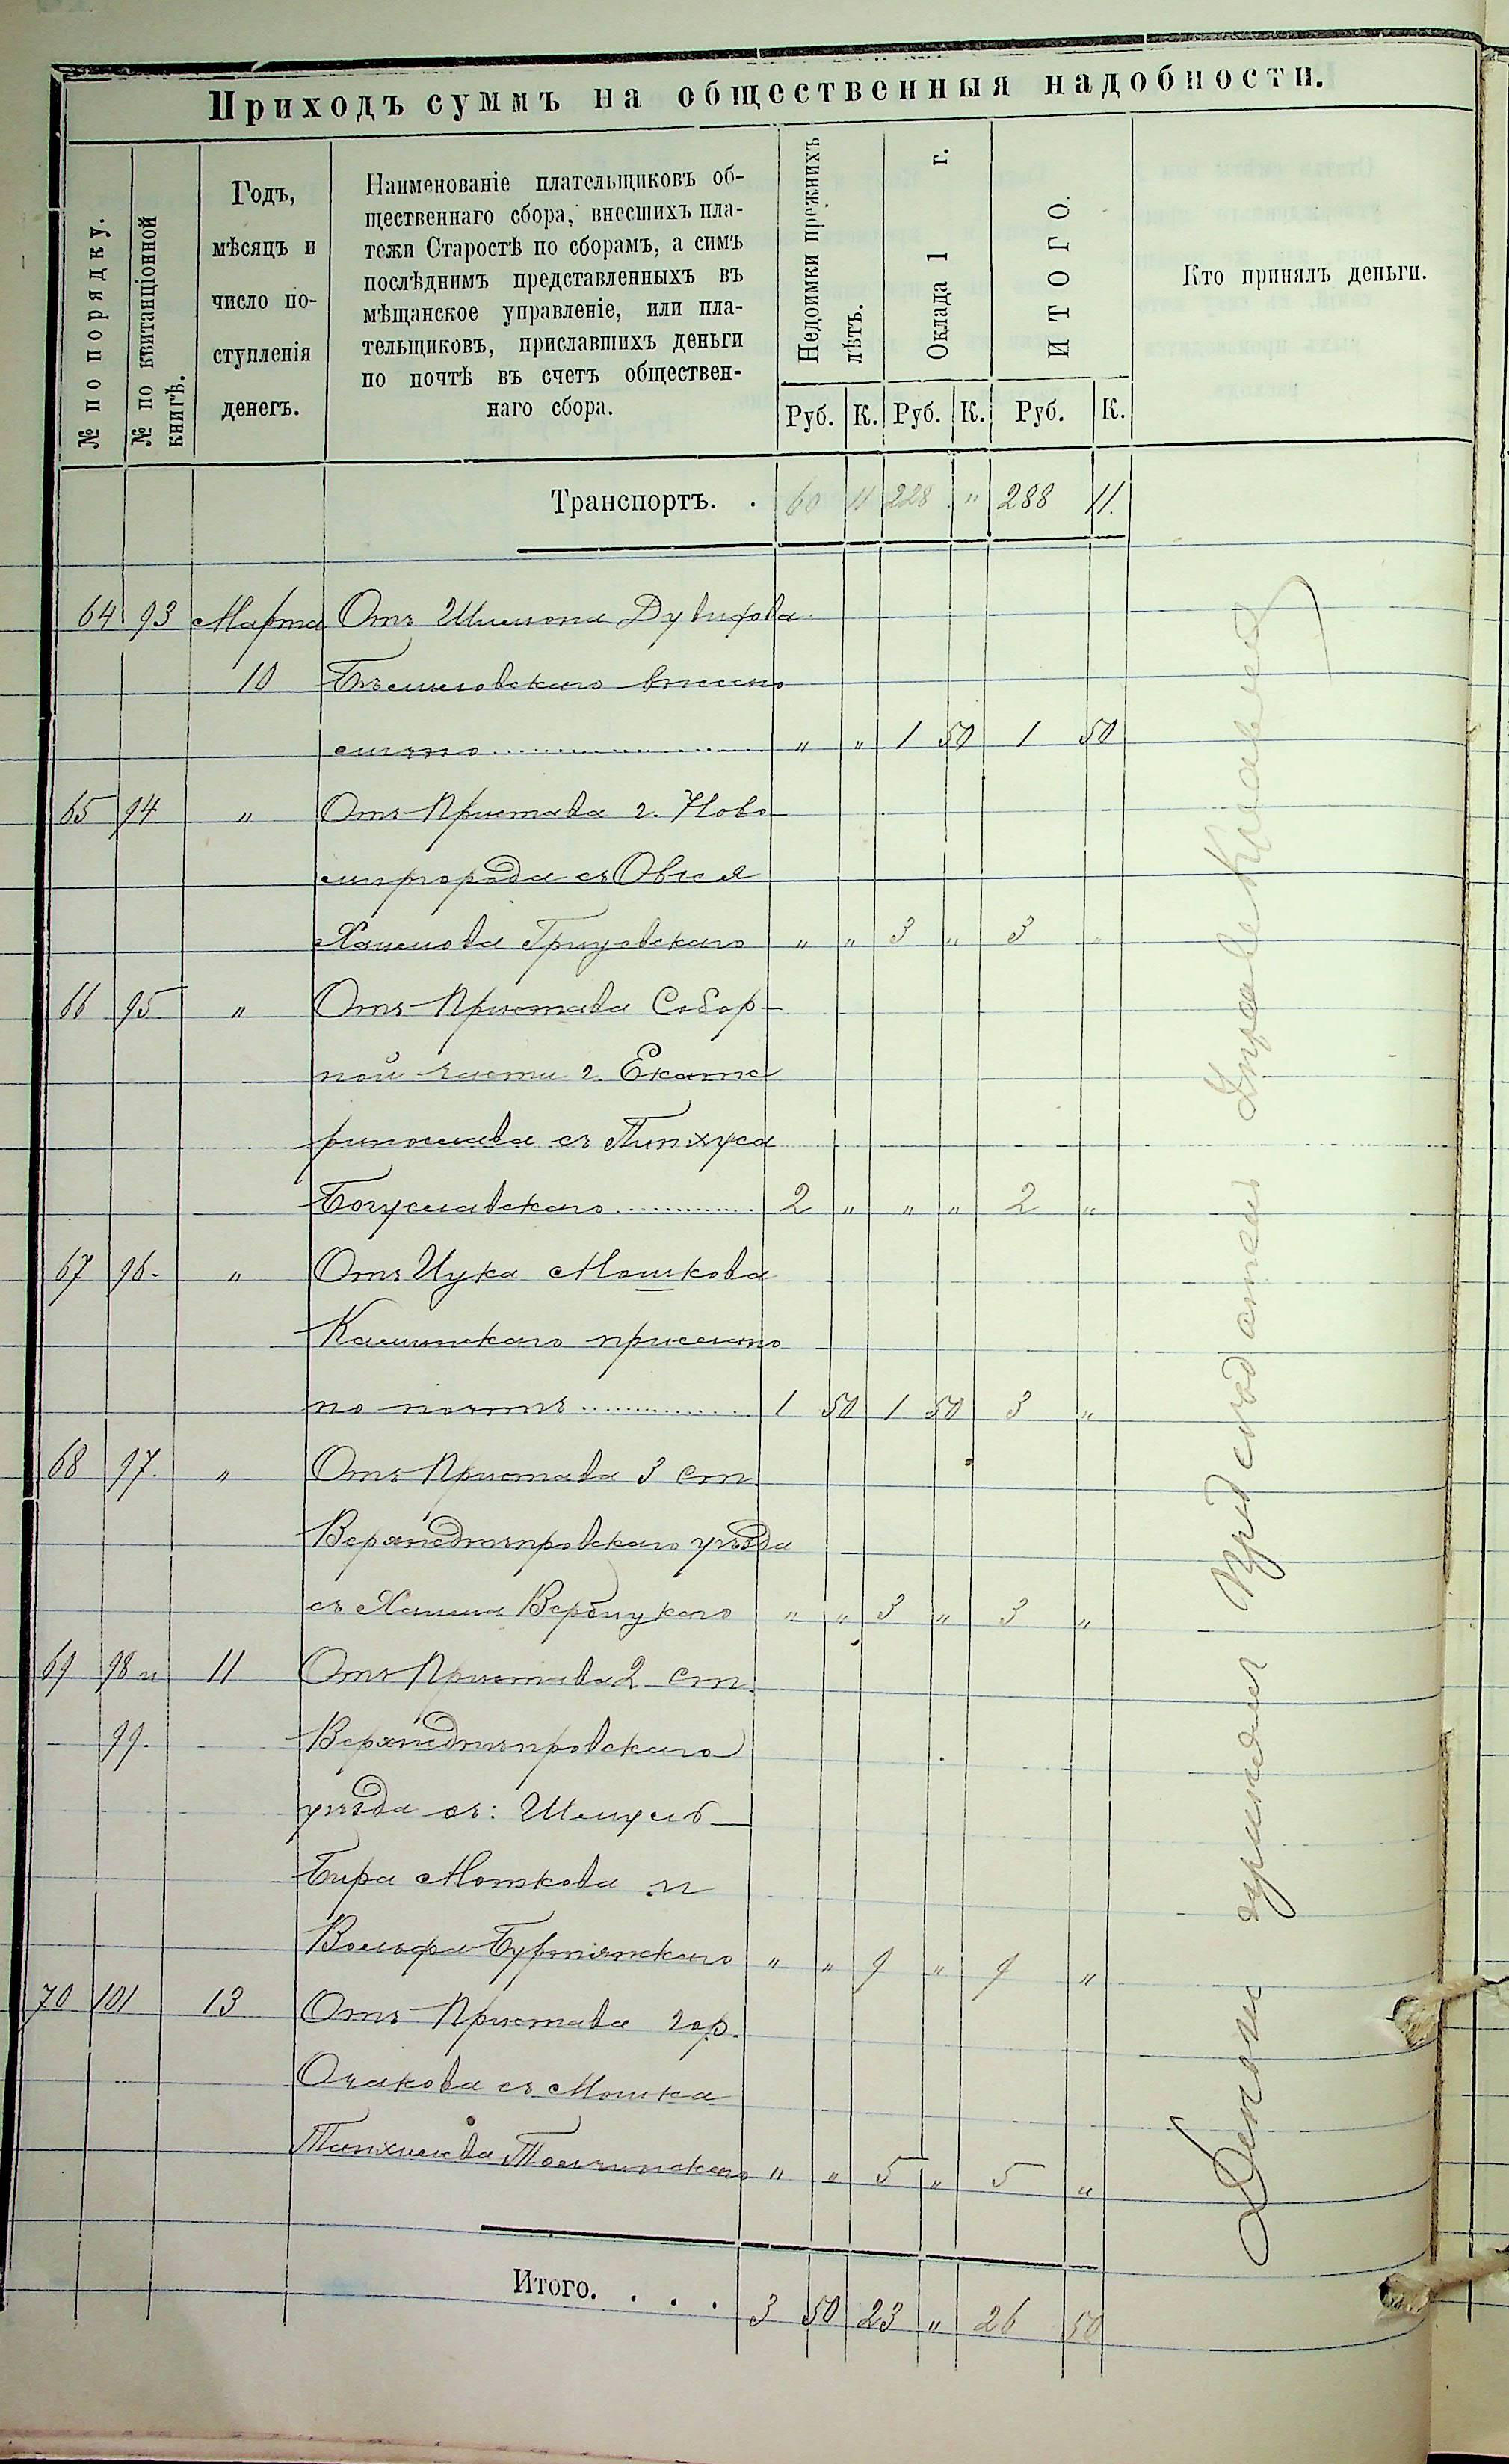 Приходъ суммъ на общественныя надобности.
№ по порядку.
№ по квитанціонной
книгѣ.
Годъ,
мѣсяцъ и
число по-
ступленія
денегъ.
Наименованіе плательщиковъ об-
щественнаго сбора, внесшихъ пла-
тежи Старостѣ по сборамъ, а симъ
послѣднимъ представленныхъ въ
мѣщанское управленіе, или пла-
тельщиковъ, приславшихъ деньги
по почтѣ въ счетъ обществен-
наго сбора.
Недоимки прежнихъ
лѣтъ.
Оклада 1 г.
ИТОГО.
Кто принялъ деньги.
Руб. К. Руб. К. Руб. К.
Транспортъ. . 60 11 228 " 288 11.
64 93 Марта Отъ Шимона Дувидова
10 внесено
" " 1 50 1 50
65 94 " Отъ Пристава г. Ново-
миргорода съ Овсея
Хаимова " " 3 " 3 "
66 95 " Отъ Пристава Собор-
ной части г. Екате
ринослава съ Пинхуса
Богуславскаго 2 " " " 2 "
67 96. " Отъ Ицка Мошкова
Калинскаго прислано
по почтѣ 1 50 1 50 3 "
68 97. " Отъ Пристава 3 ст.
Верхнеднѣпровскаго уѣзда
съ Хаима Вербицкаго " " 3 " 3 "
69 98 и 11 Отъ Пристава 2 ст.
99. Верхнеднѣпровскаго
уѣзда съ: Шмуль
Бера Мошкова и
Вольфа " " 9 " 9 "
70 101 13 Отъ Пристава гор.
Очакова съ Мошка
" " 5 " 5 "
Итого. . . . 3 50 23 " 26 50
Деньги принялъ Предсѣдатель Управы